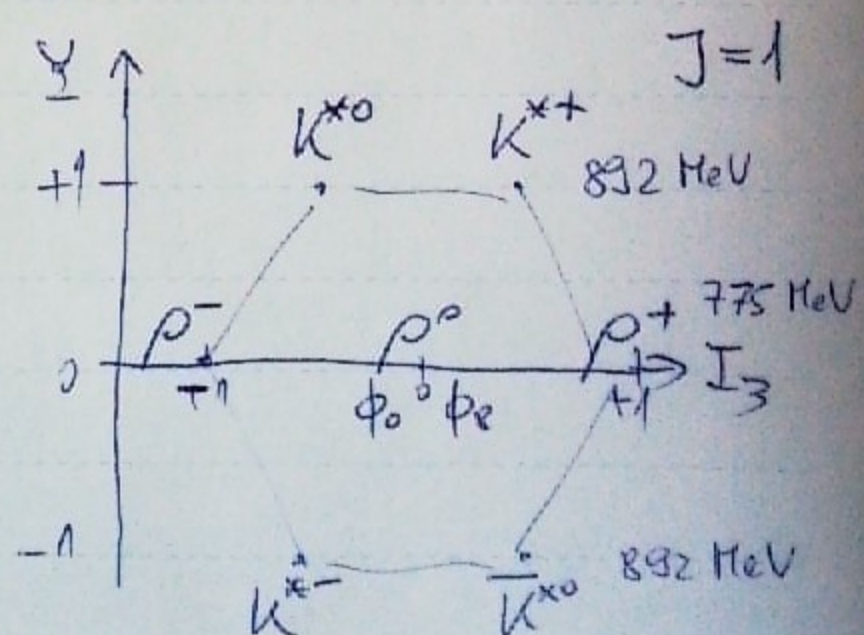 Y
J=1
K*0 K*+
+1 892 MeV
ρ- ρ0 ρ+ 775 MeV
0 -1 ϕ0 0 ϕ8 +1 I3
-1 K*- K̅*0 892 MeV